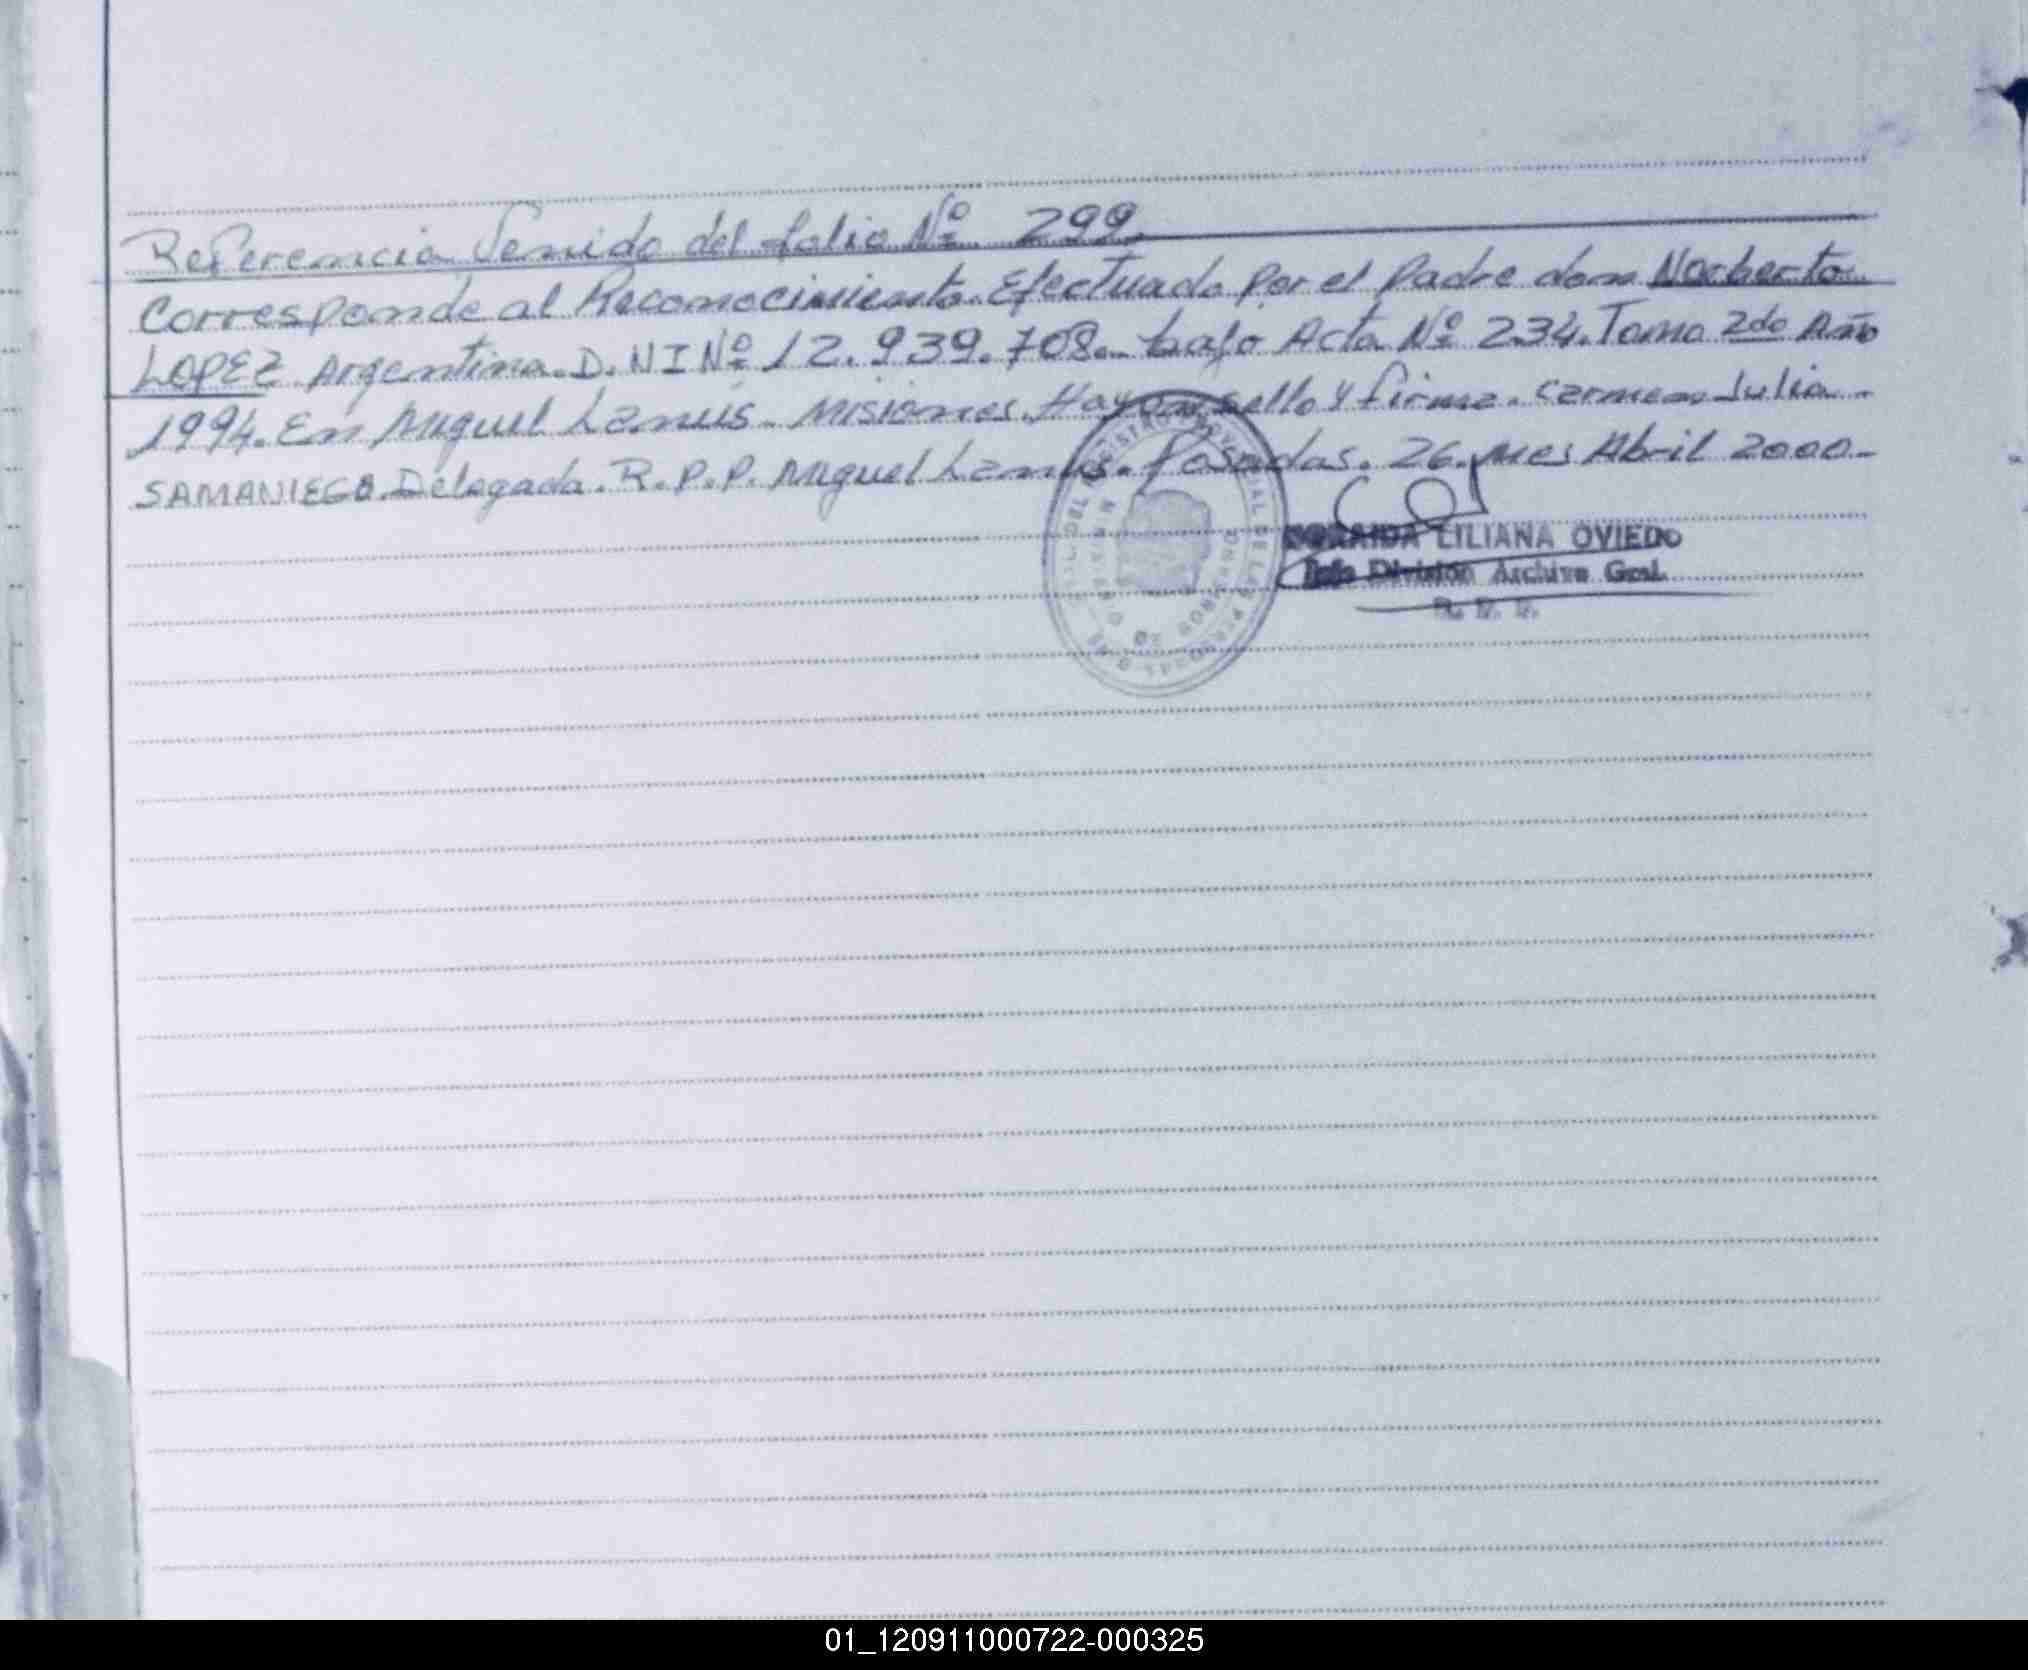 Referencia Venida del folio Nº 299.
Corresponde al Reconocimiento. Efectuado Por el Padre don Norberto
LOPEZ. Argentina. D. NI Nº 12.939.708. bajo Acta Nº 234. Tomo 2do Año
1994. En Miguel Lanús. Misiones. Hay un sello y firma. Carmen Julia
SAMANIEGO Delegada. R.P.P. Miguel Lanús. Posadas. 26. Mes Abril 2000.
LILIANA OVIEDO
Jefe División Archivo Gral.
R. P. P.
01_120911000722-000325